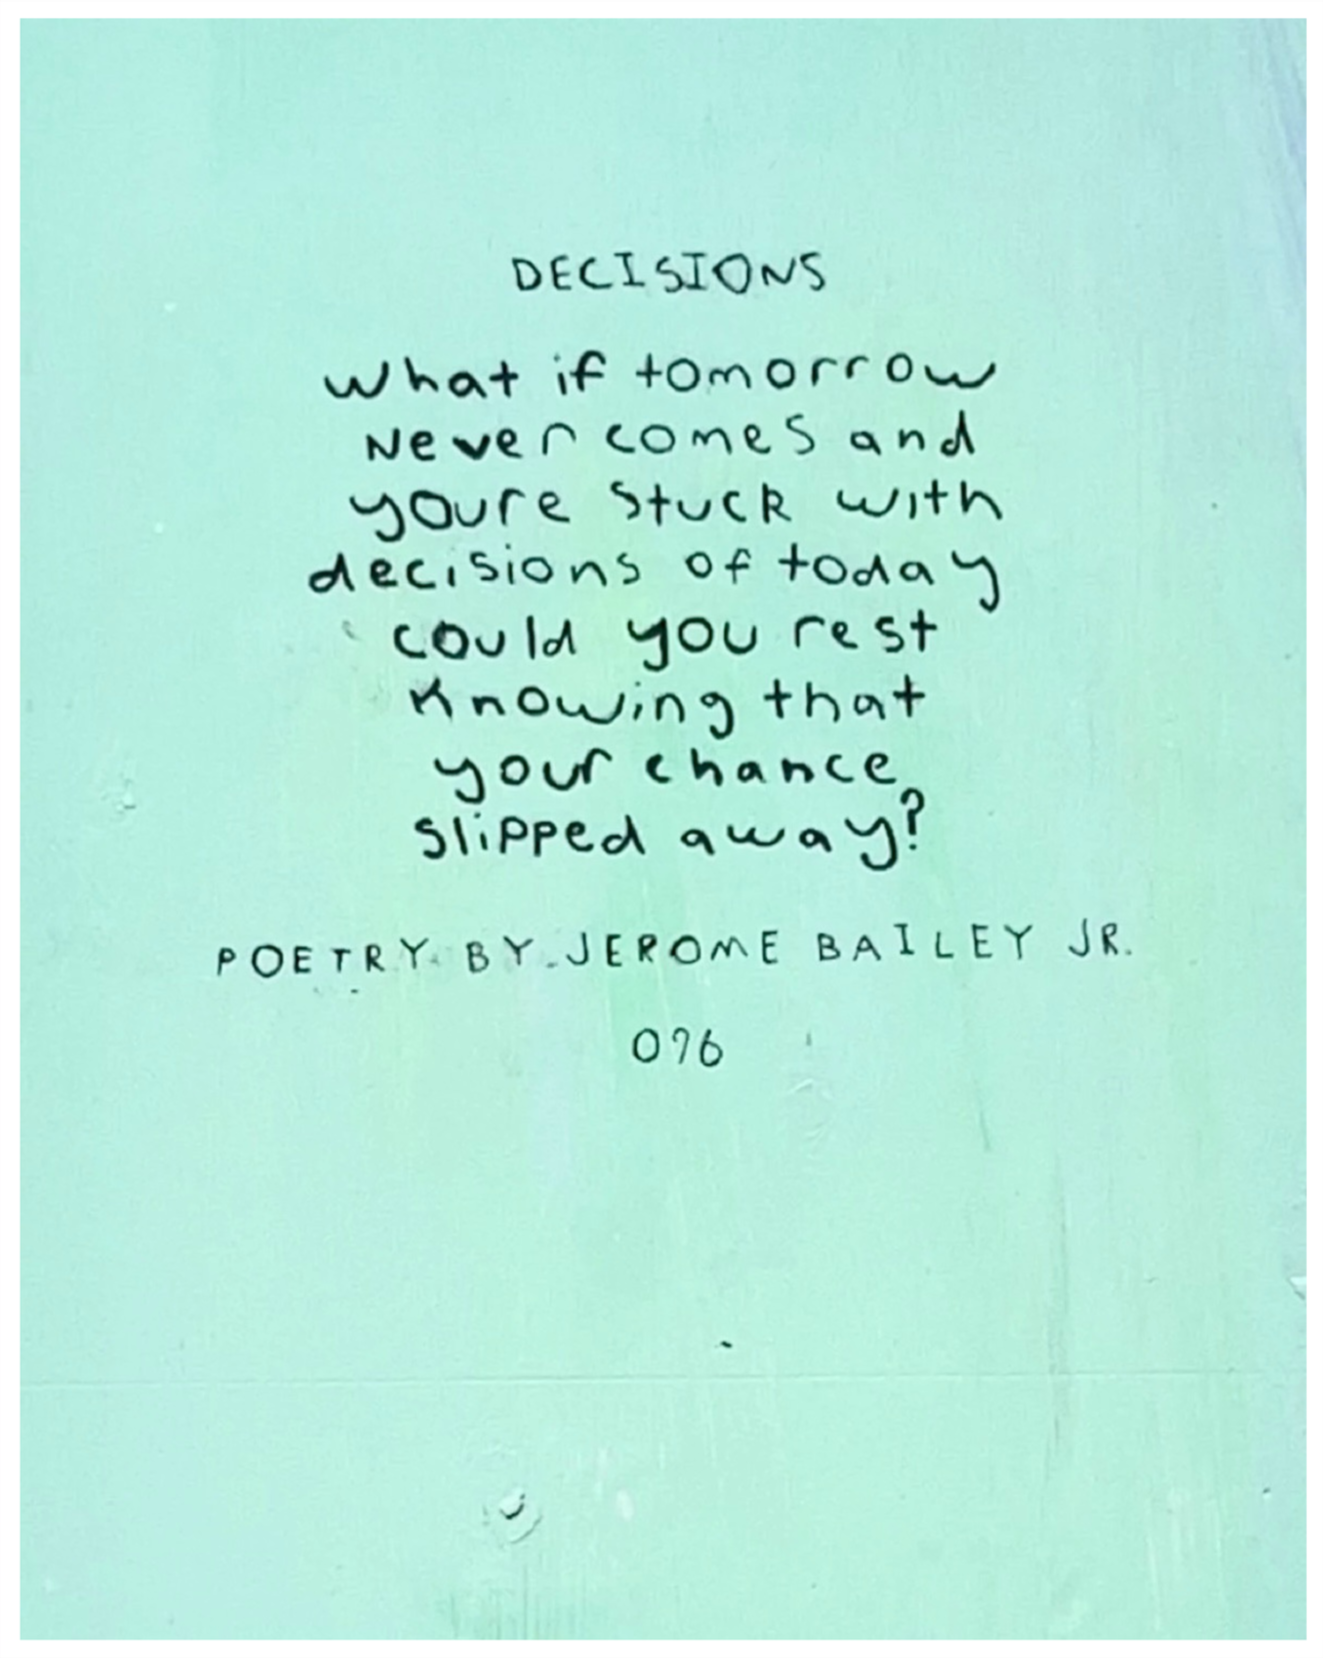 DECISIONS
what if tomorrow
Never comes and
youre stuck with
decisions of today
could you rest
Knowing that
your chance
slipped away?
POETRY BY JEROME BAILEY JR.
076